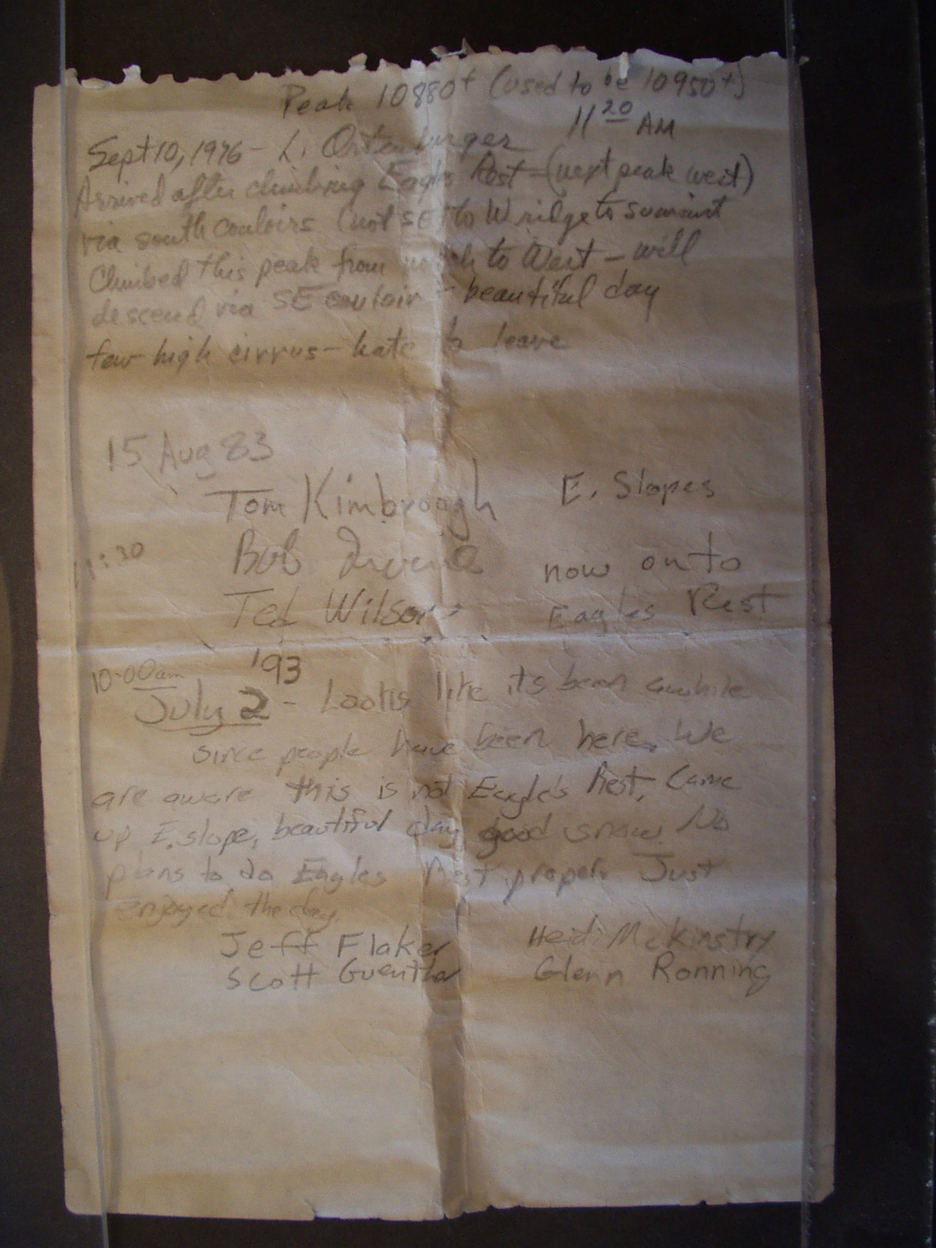 Peak 10880+ (used to be 10950+)
11 20 AM
Sept 10, 1976 - L. Ortenburger
Arrived after climbing Eagles Rest - (next peak west)
via south couloirs (not SE) to W ridge to summit
Climbed this peak from notch to West - will
descend via SE couloir - beautiful day
few high cirrus - hate to leave
15 Aug 83
Tom Kimbrough E. Slopes
:30 Bob Irvine now on to
Ted Wilson Eagles Rest
10:00am '93
July 2 - Looks like its been awhile
since people have been here. We
are aware this is not Eagle's Rest, Came
up E. slope, beautiful day good snow. No
plans to do Eagles Rest proper. Just
enjoyed the day.
Jeff Flaker Heidi McKinstry
Scott Guenther Glenn Ronning